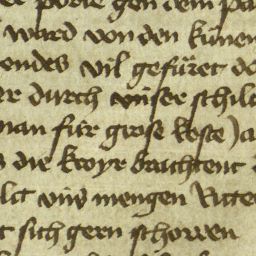 porte gen dem pa
ward von den künen
endes vil gefüret do
er durch vnser schilt
man für grose koste) a
die kroyr brachtent
vns mengen Ritte
t sich gern schowen